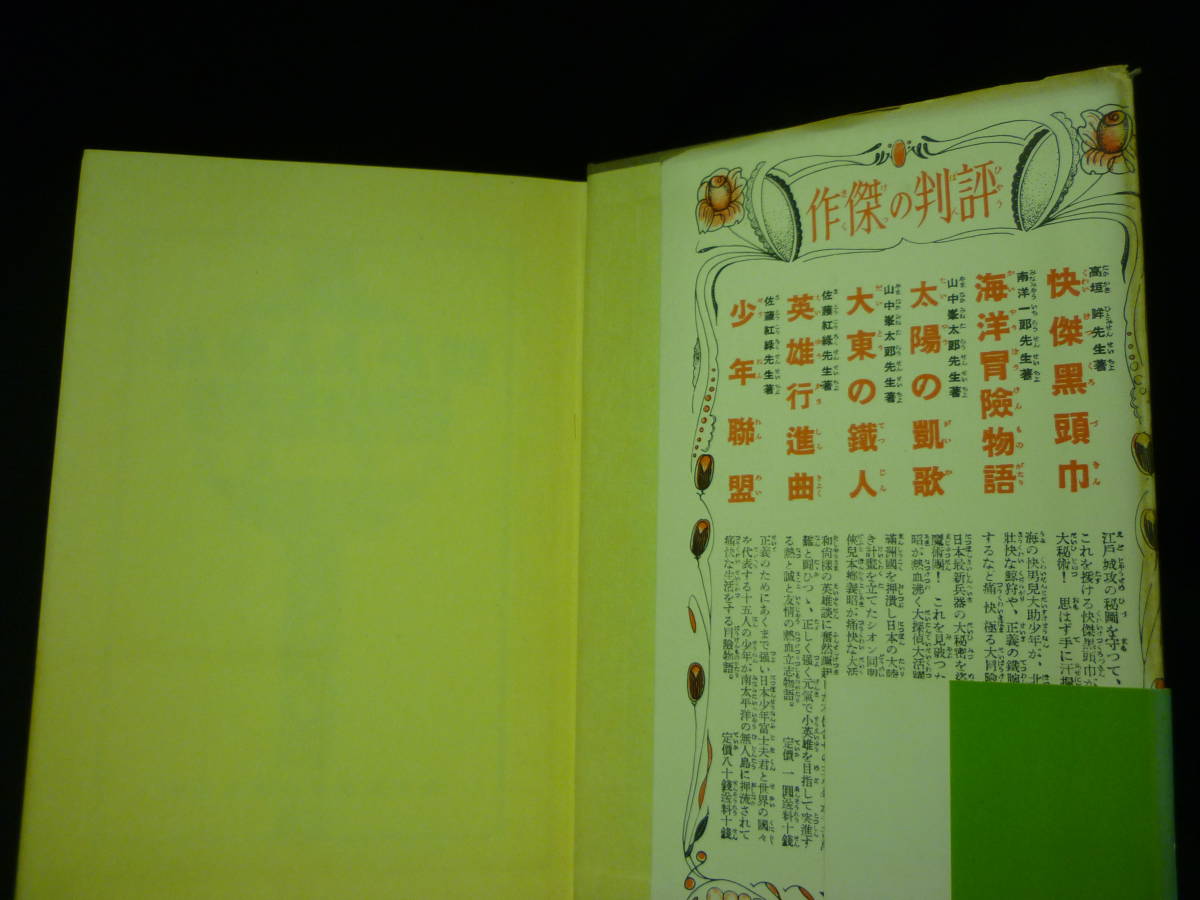 評判の傑作
高垣眸先生著
快傑黒頭巾
南洋一郎先生著
海洋冒險物語
山中峯太郎先生著
太陽の凱歌
山中峯太郎先生著
大東の鐵人
佐藤紅緑先生著
英雄行進曲
佐藤紅緑先生著
少年聯盟
江戸城攻の秘圖を守つて、
これを援ける快傑黒頭巾が
大秘術! 思はず手に汗握
海の快男兒大助少年が、北
壮快な鯨狩や、正義の鐵腕
するなど痛快極る大冒險
日本最新兵器の大秘密を盗
魔術團! これを見破つた
昭が熱血沸く大探偵大活躍
滿洲國を押潰し日本の大陸
き計畫を立てたシオン同盟
俠兒本郷義昭が痛快な大活
和尚樣の英雄談に奮然蹶起し
難と闘ひつゝ、正しく强く元氣で小英雄を目指して突進す
る熱と誠と友情の熱血立志物語。 定價一圓送料十錢
正義のためにあくまで强い日本少年富士夫君と世界の國々
を代表する十五人の少年が南太平洋の無人島に押流されて
痛快な生活をする冒險物語。 定價八十錢送料十錢